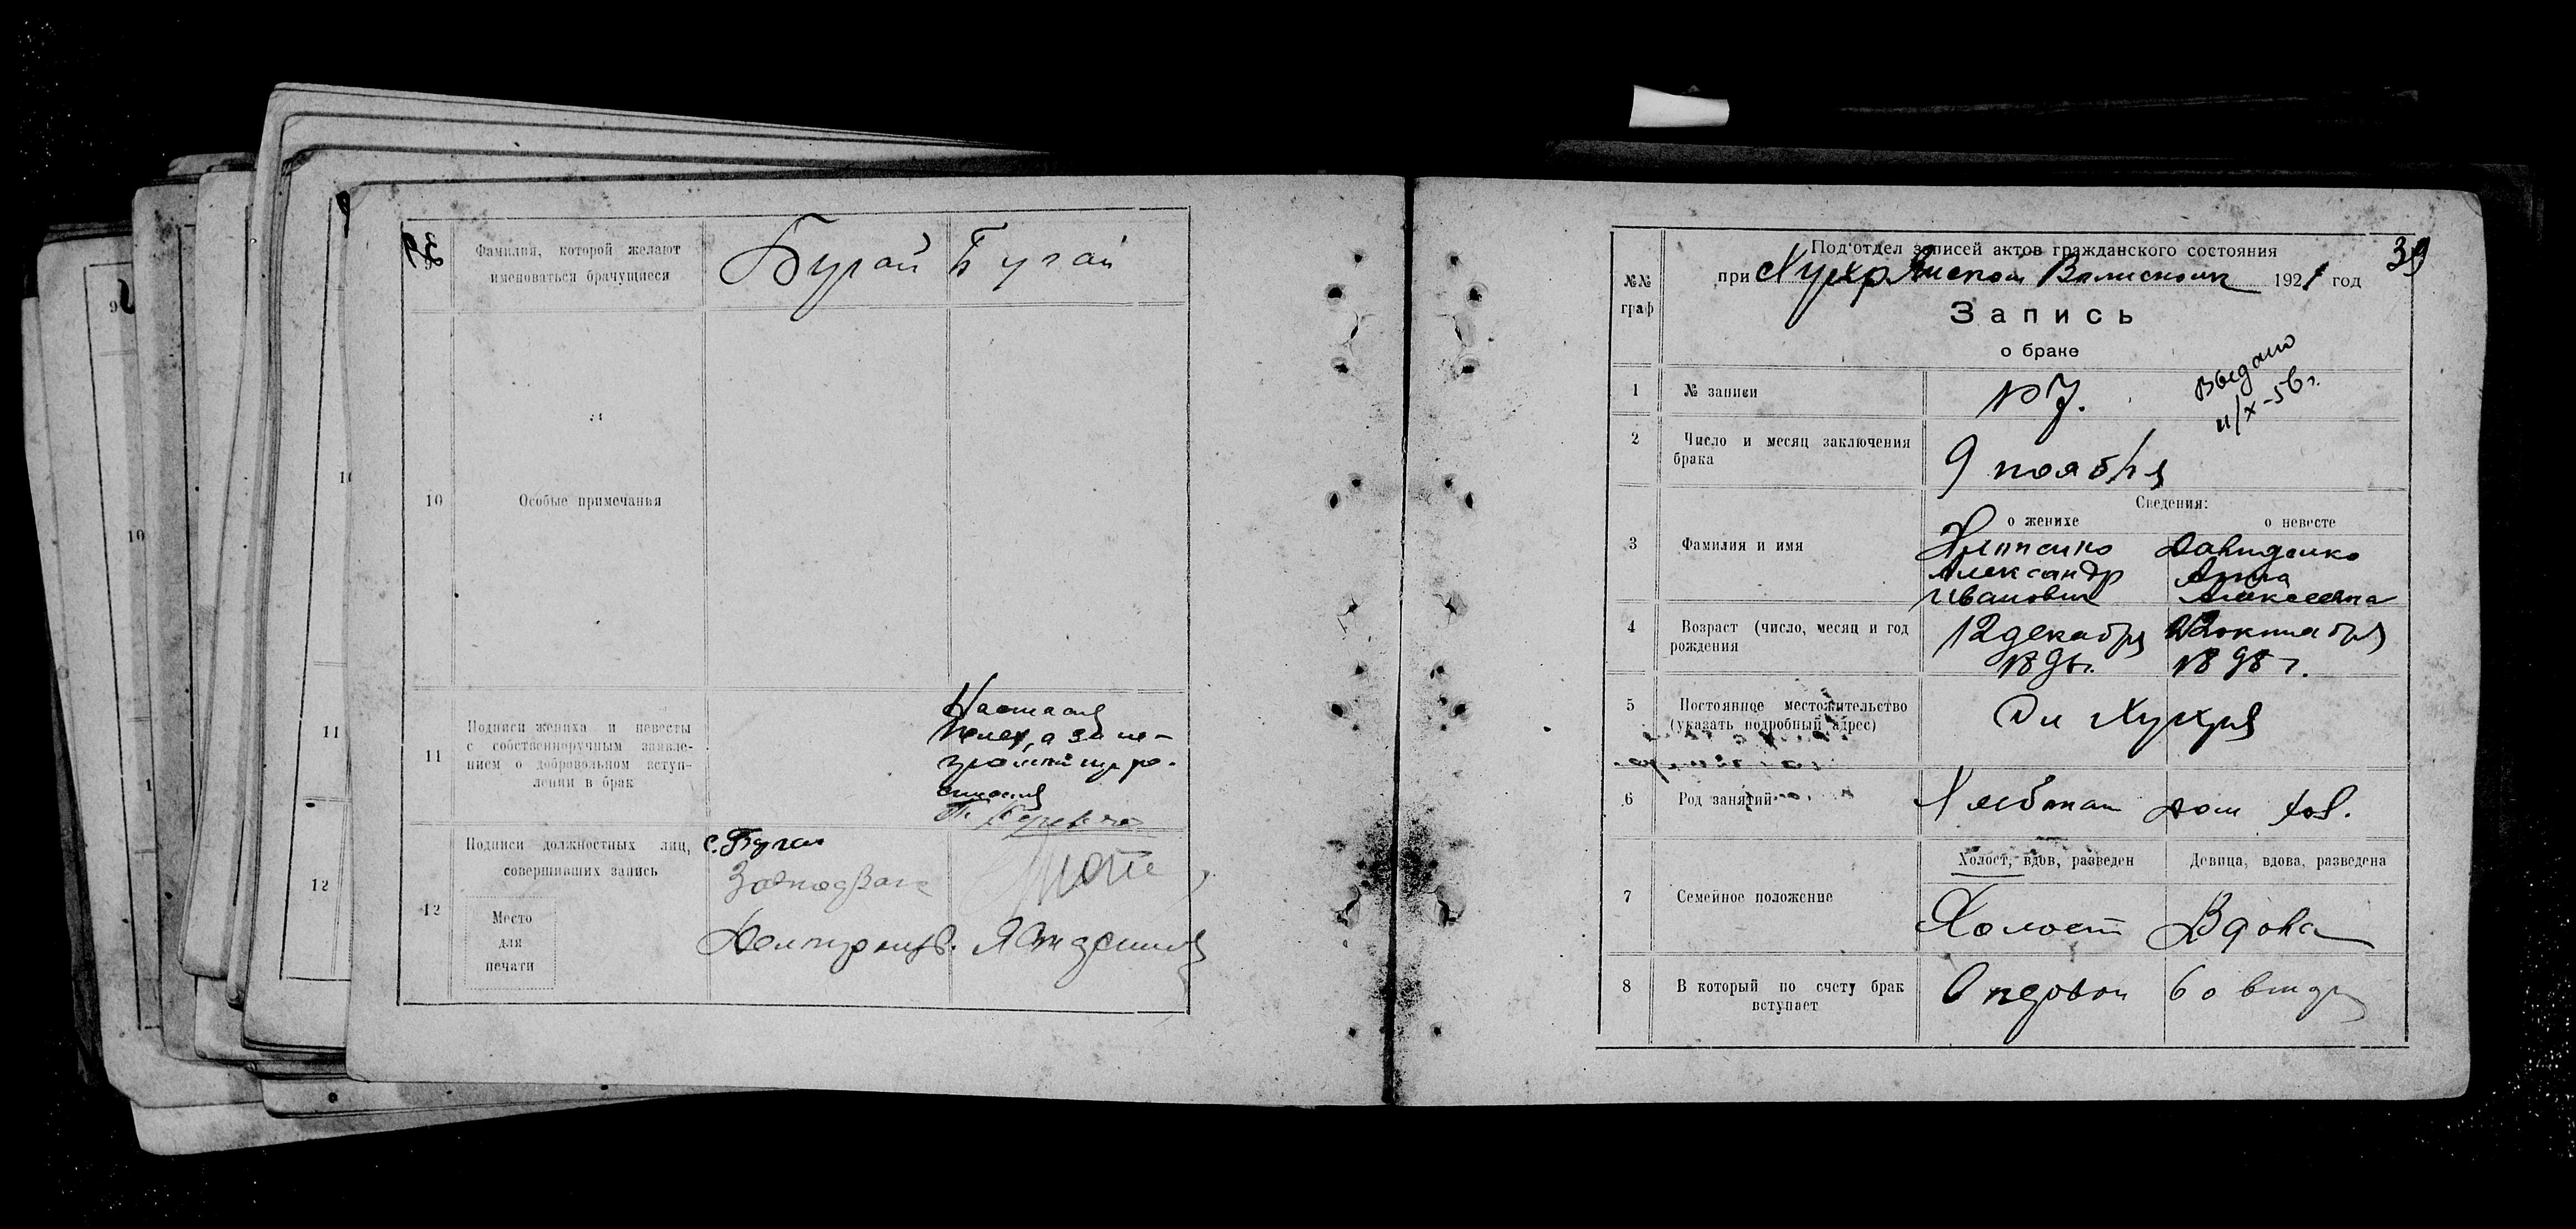 9
Фамилия, которой желают
именоваться брачущиеся
Бугай Бугай
10
Особые примечания
11
Подписи жениха и невесты
с собственноручным заявле-
нием о добровольном вступ-
лении в брак
Настасия
а за не-
12
Подписи должностных лиц,
совершивших запись
с. Бугай
Место
для
печати
Делопроизв.
39
№№
граф
Под'отдел записей актов гражданского состояния
при Волисполк 1921 год
Запись
о браке
Выдано
11/X-56г.
1
№ записи
№7.
2
Число и месяц заключения
брака
9 ноября
Сведения:
о женихе
о невесте
3
Фамилия и имя
Давиденко
Александр Анна
Иванович Алексеевна
4
Возраст (число, месяц и год
рождения
12 декабря 22 октября
1898 г.
5
Постоянное местожительство
(указать подробный адрес)
Хухря
6
Род занятий
Хлебопаш Дом хоз.
7
Семейное положение
Холост, вдов, разведен
Девица, вдова, разведена
Холост Вдова
8
В который по счету брак
вступает
В первой